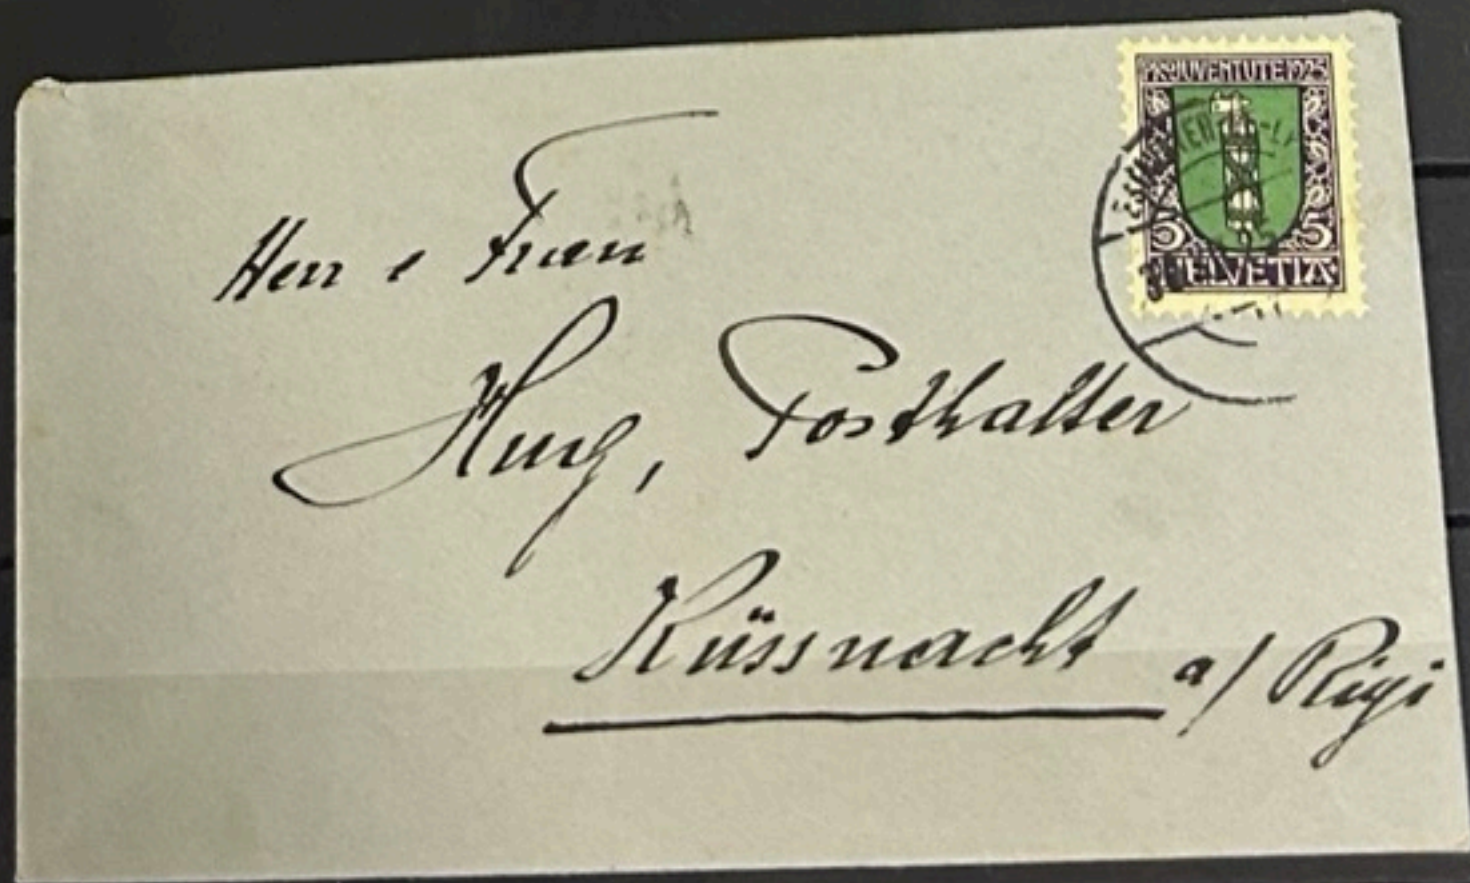 PRO JUVENTUTE 1925
5 5
HELVETIA
Herr e Frau
Hug, Posthalter
Küssnacht a/ Rigi